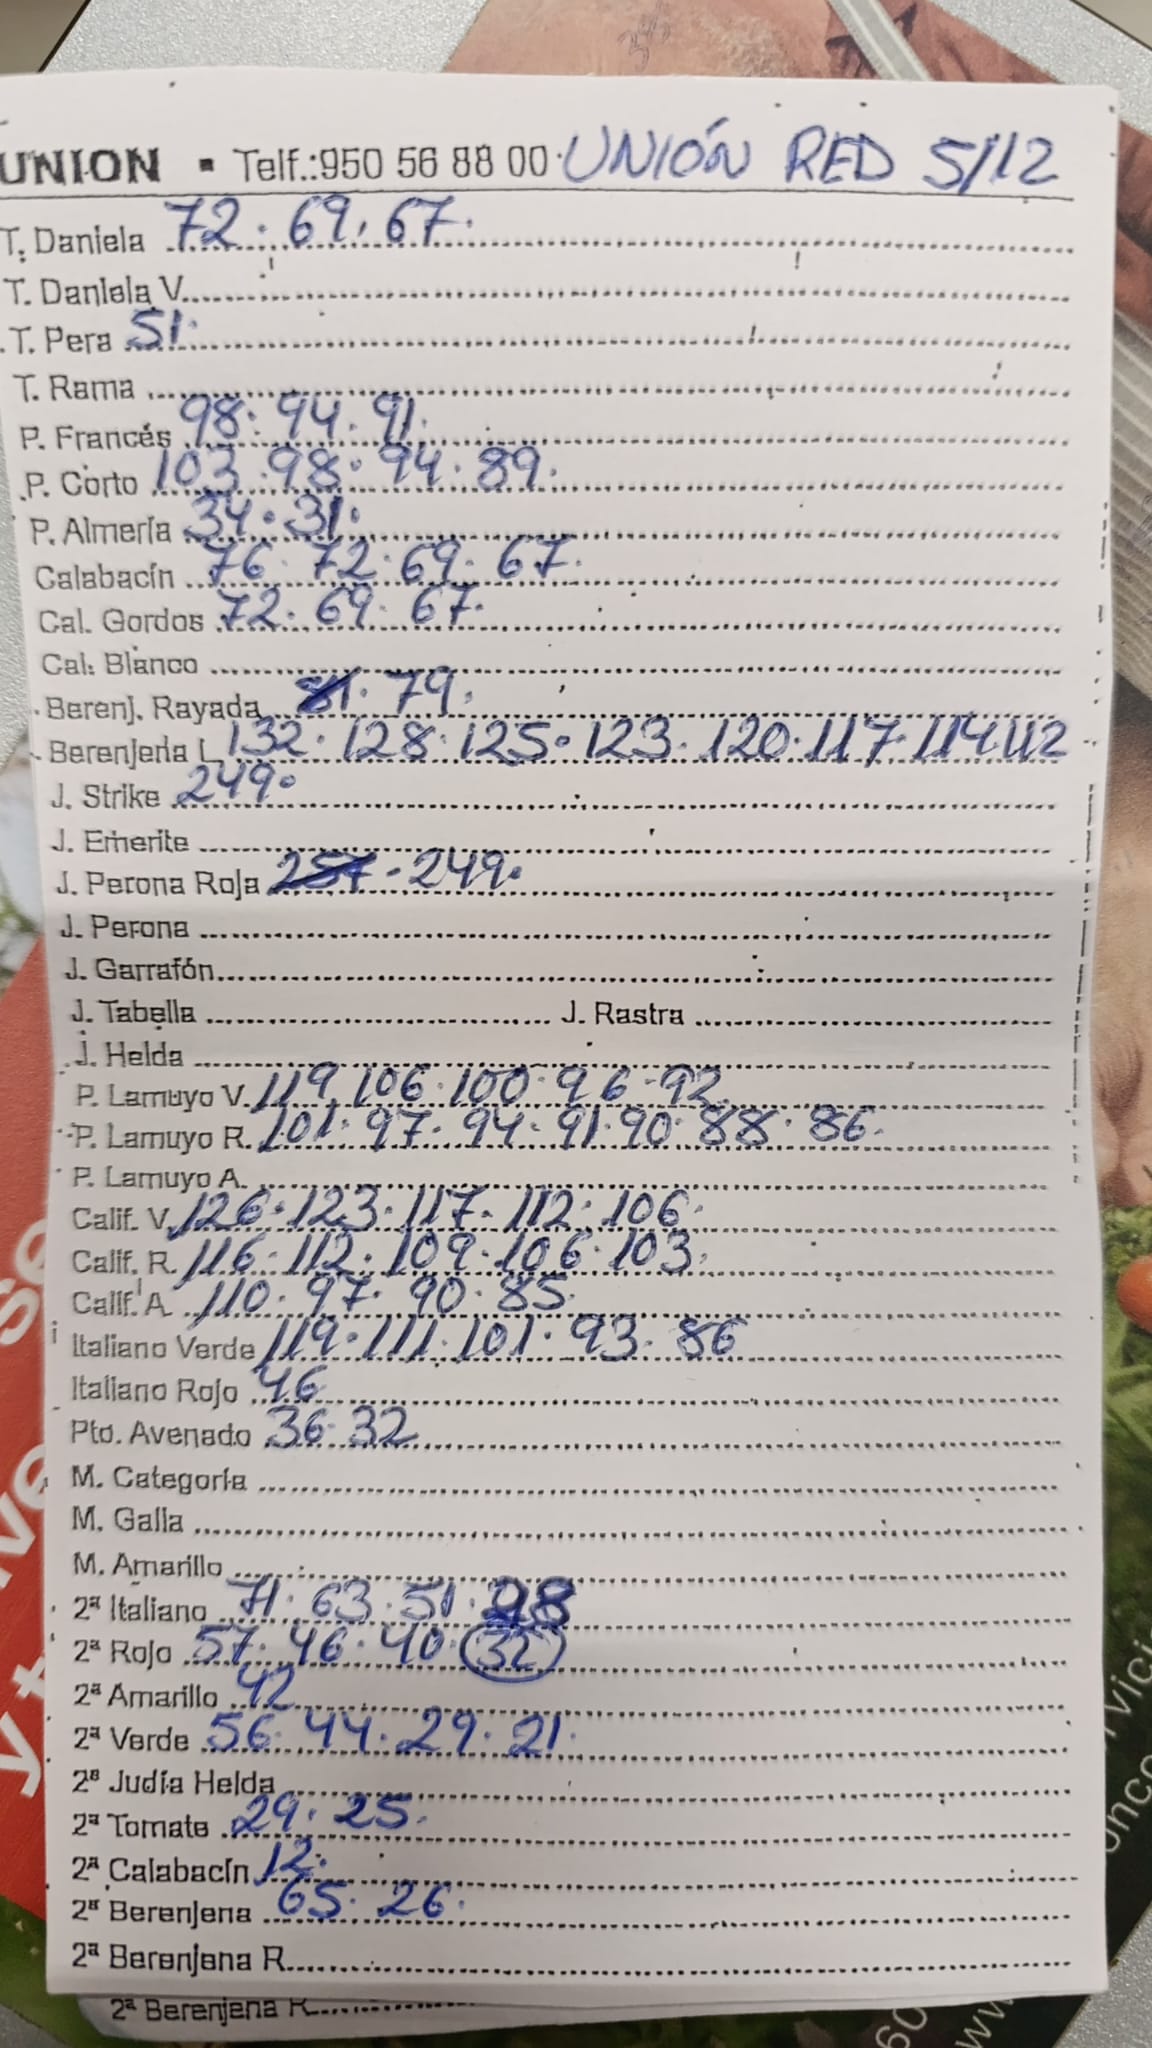 UNION ▪ Telf.:950 56 88 00 UNIÓN RED 5/12
T. Daniela 72. 69. 67.
T. Daniela V.
T. Pera 51.
T. Rama
P. Francés 98. 94. 91.
P. Corto 103. 98. 94. 89.
P. Almería 34. 31.
Calabacín 76. 72. 69. 67.
Cal. Gordos 72. 69. 67.
Cal. Blanco
Berenj. Rayada 81. 79.
Berenjena L 132. 128. 125. 123. 120. 117. 114. 112
J. Strike 249.
J. Emerite
J. Perona Roja 257. 249.
J. Perona
J. Garrafón
J. Tabella J. Rastra
J. Helda
P. Lamuyo V. 119. 106. 100. 96. 92.
P. Lamuyo R. 101. 97. 94. 91. 90. 88. 86.
P. Lamuyo A.
Calif. V. 126. 123. 117. 112. 106.
Calif. R. 116. 112. 109. 106. 103.
Calif. A. 110. 97. 90. 85.
Italiano Verde 119. 111. 101. 93. 86
Italiano Rojo 46
Pto. Avenado 36. 32
M. Categoría
M. Galia
M. Amarillo
2ª Italiano 71. 63. 51.
2ª Rojo 57. 46. 40. 32
2ª Amarillo 42
2ª Verde 56. 44. 29. 21.
2ª Judía Helda
2ª Tomate 29. 25.
2ª Calabacín 12.
2ª Berenjena 65. 26.
2ª Berenjena R.
2ª Berenjena R.